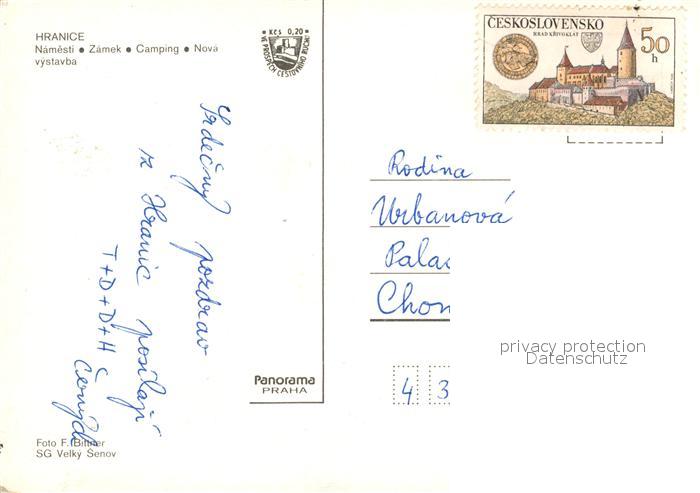 HRANICE
Náměstí ● Zámek ● Camping ● Nová
výstavba
Kčs 0,20
VE PROSPĚCH CESTOVNÍHO RUCHU
ČESKOSLOVENSKO
HRAD KŘIVOKLÁT
50
h
Srdečný pozdrav
z Hranic posílají
T+D+D+H
Rodina
Urbanová
Palac
Chom
4 3
privacy protection
Datenschutz
Panorama
PRAHA
Foto F. Bittner
SG Velký Šenov